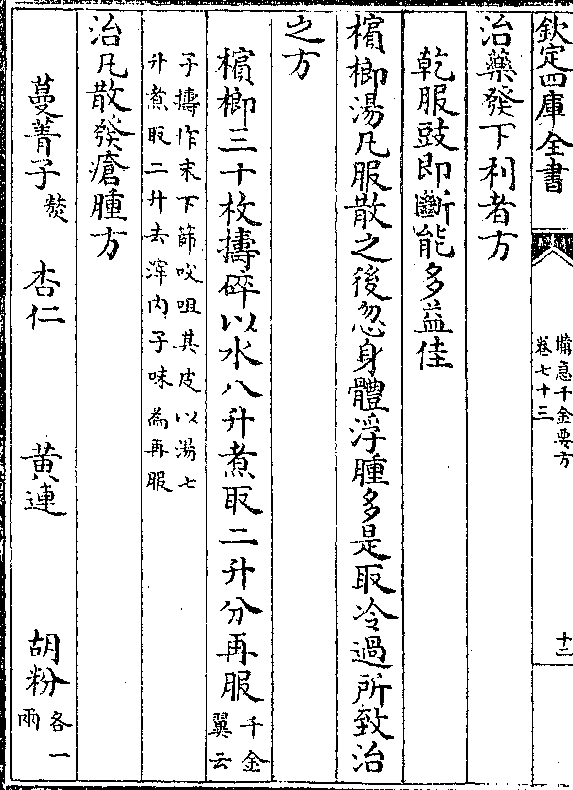 欽定四庫全書
備急千金要方
卷七十三
十二
治藥發下利者方
乾服豉即斷能多益佳
檳榔湯凡服散之後忽身體浮腫多是取冷過所致治
之方
檳榔三十枚擣碎以水八升煮取二升分再服千金
翼云
子擣作末下篩㕮咀其皮以湯七
升煮取二升去滓内子味為再服
治凡散發瘡腫方
蔓菁子熬 杏仁 黄連 胡粉各一
兩